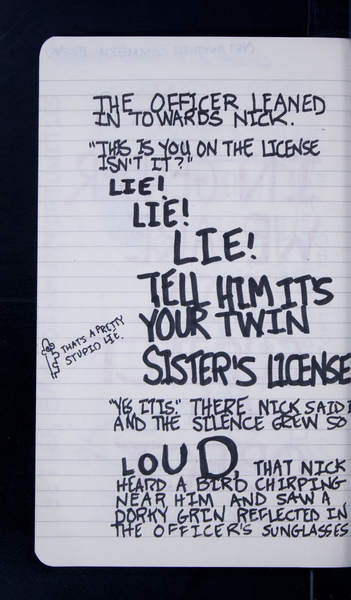 THE OFFICER LEANED
IN TOWARDS NICK.
"THIS IS YOU ON THE LICENSE
ISN'T IT?"
LIE!
LIE!
LIE!
TELL HIM IT'S
YOUR TWIN
SISTER'S LICENSE
THATS A PRETTY
STUPID LIE.
"YES IT IS." THERE NICK SAID I
AND THE SILENCE GREW SO
LOUD, THAT NICK
HEARD A BIRD CHIRPING
NEAR HIM AND SAW A
DORKY GRIN REFLECTED IN
THE OFFICER'S SUNGLASSES